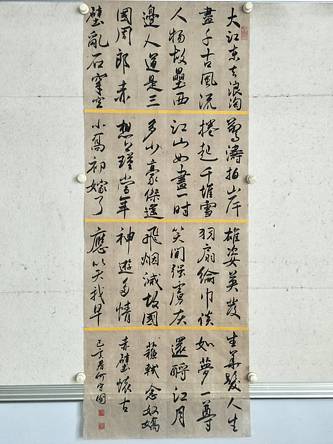 大江東去浪淘
盡千古風流
人物故壘西
邊人道是三
國周郎赤
壁亂石穿空
驚濤拍岸
捲起千堆雪
江山如畫一時
多少豪傑遥
想公瑾當年
小喬初嫁了
雄姿英發
羽扇綸巾談
笑間强虜灰
飛烟滅故國
神遊多情
應笑我早
生華髮人生
如夢一尊
還酹江月
蘇軾念奴嬌
赤壁懷古